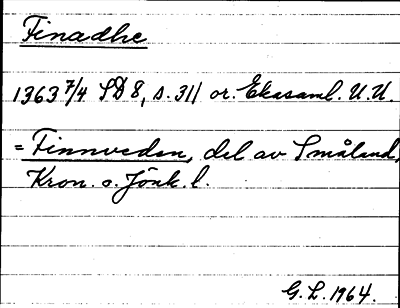 Finadhe
1363 7/4 SD 8, s. 311 or. Ekasaml. U.U.
= Finnveden, del av Småland,
Kron. o. Jönk. l.
G. L. 1964.